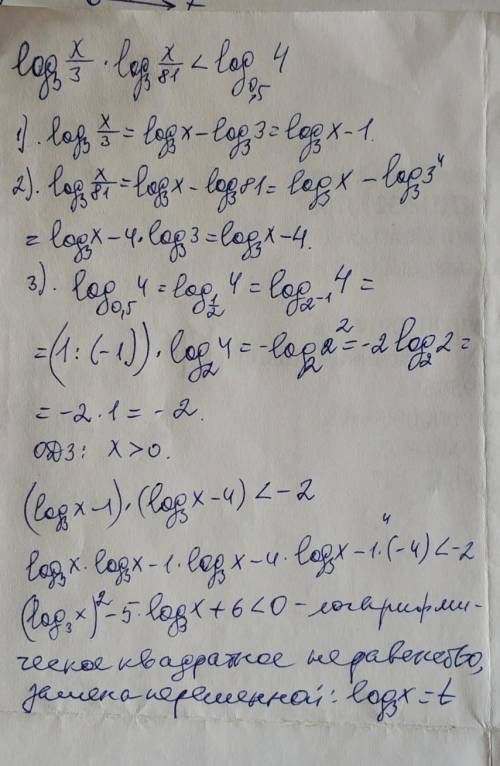 log₃ x/3 · log₃ x/81 < log₀,₅ 4
1). log₃ x/3 = log₃x - log₃3 = log₃x - 1.
2). log₃ x/81 = log₃x - log₃81 = log₃x - log₃3⁴
= log₃x - 4 · log₃3 = log₃x - 4.
3). log₀,₅ 4 = log_{1/2} 4 = log_{2-1} 4 =
= (1 : (-1)) · log₂4 = -log₂2² = -2 log₂2 =
= -2 · 1 = -2.
ОДЗ: x > 0.
(log₃x - 1) · (log₃x - 4) < -2
log₃x · log₃x - 1 · log₃x - 4 · log₃x - 1 · (-4) < -2
(log₃x)² - 5 · log₃x + 6 < 0 - логарифми-
ческое квадратное неравенство,
замена переменной: log₃x = t